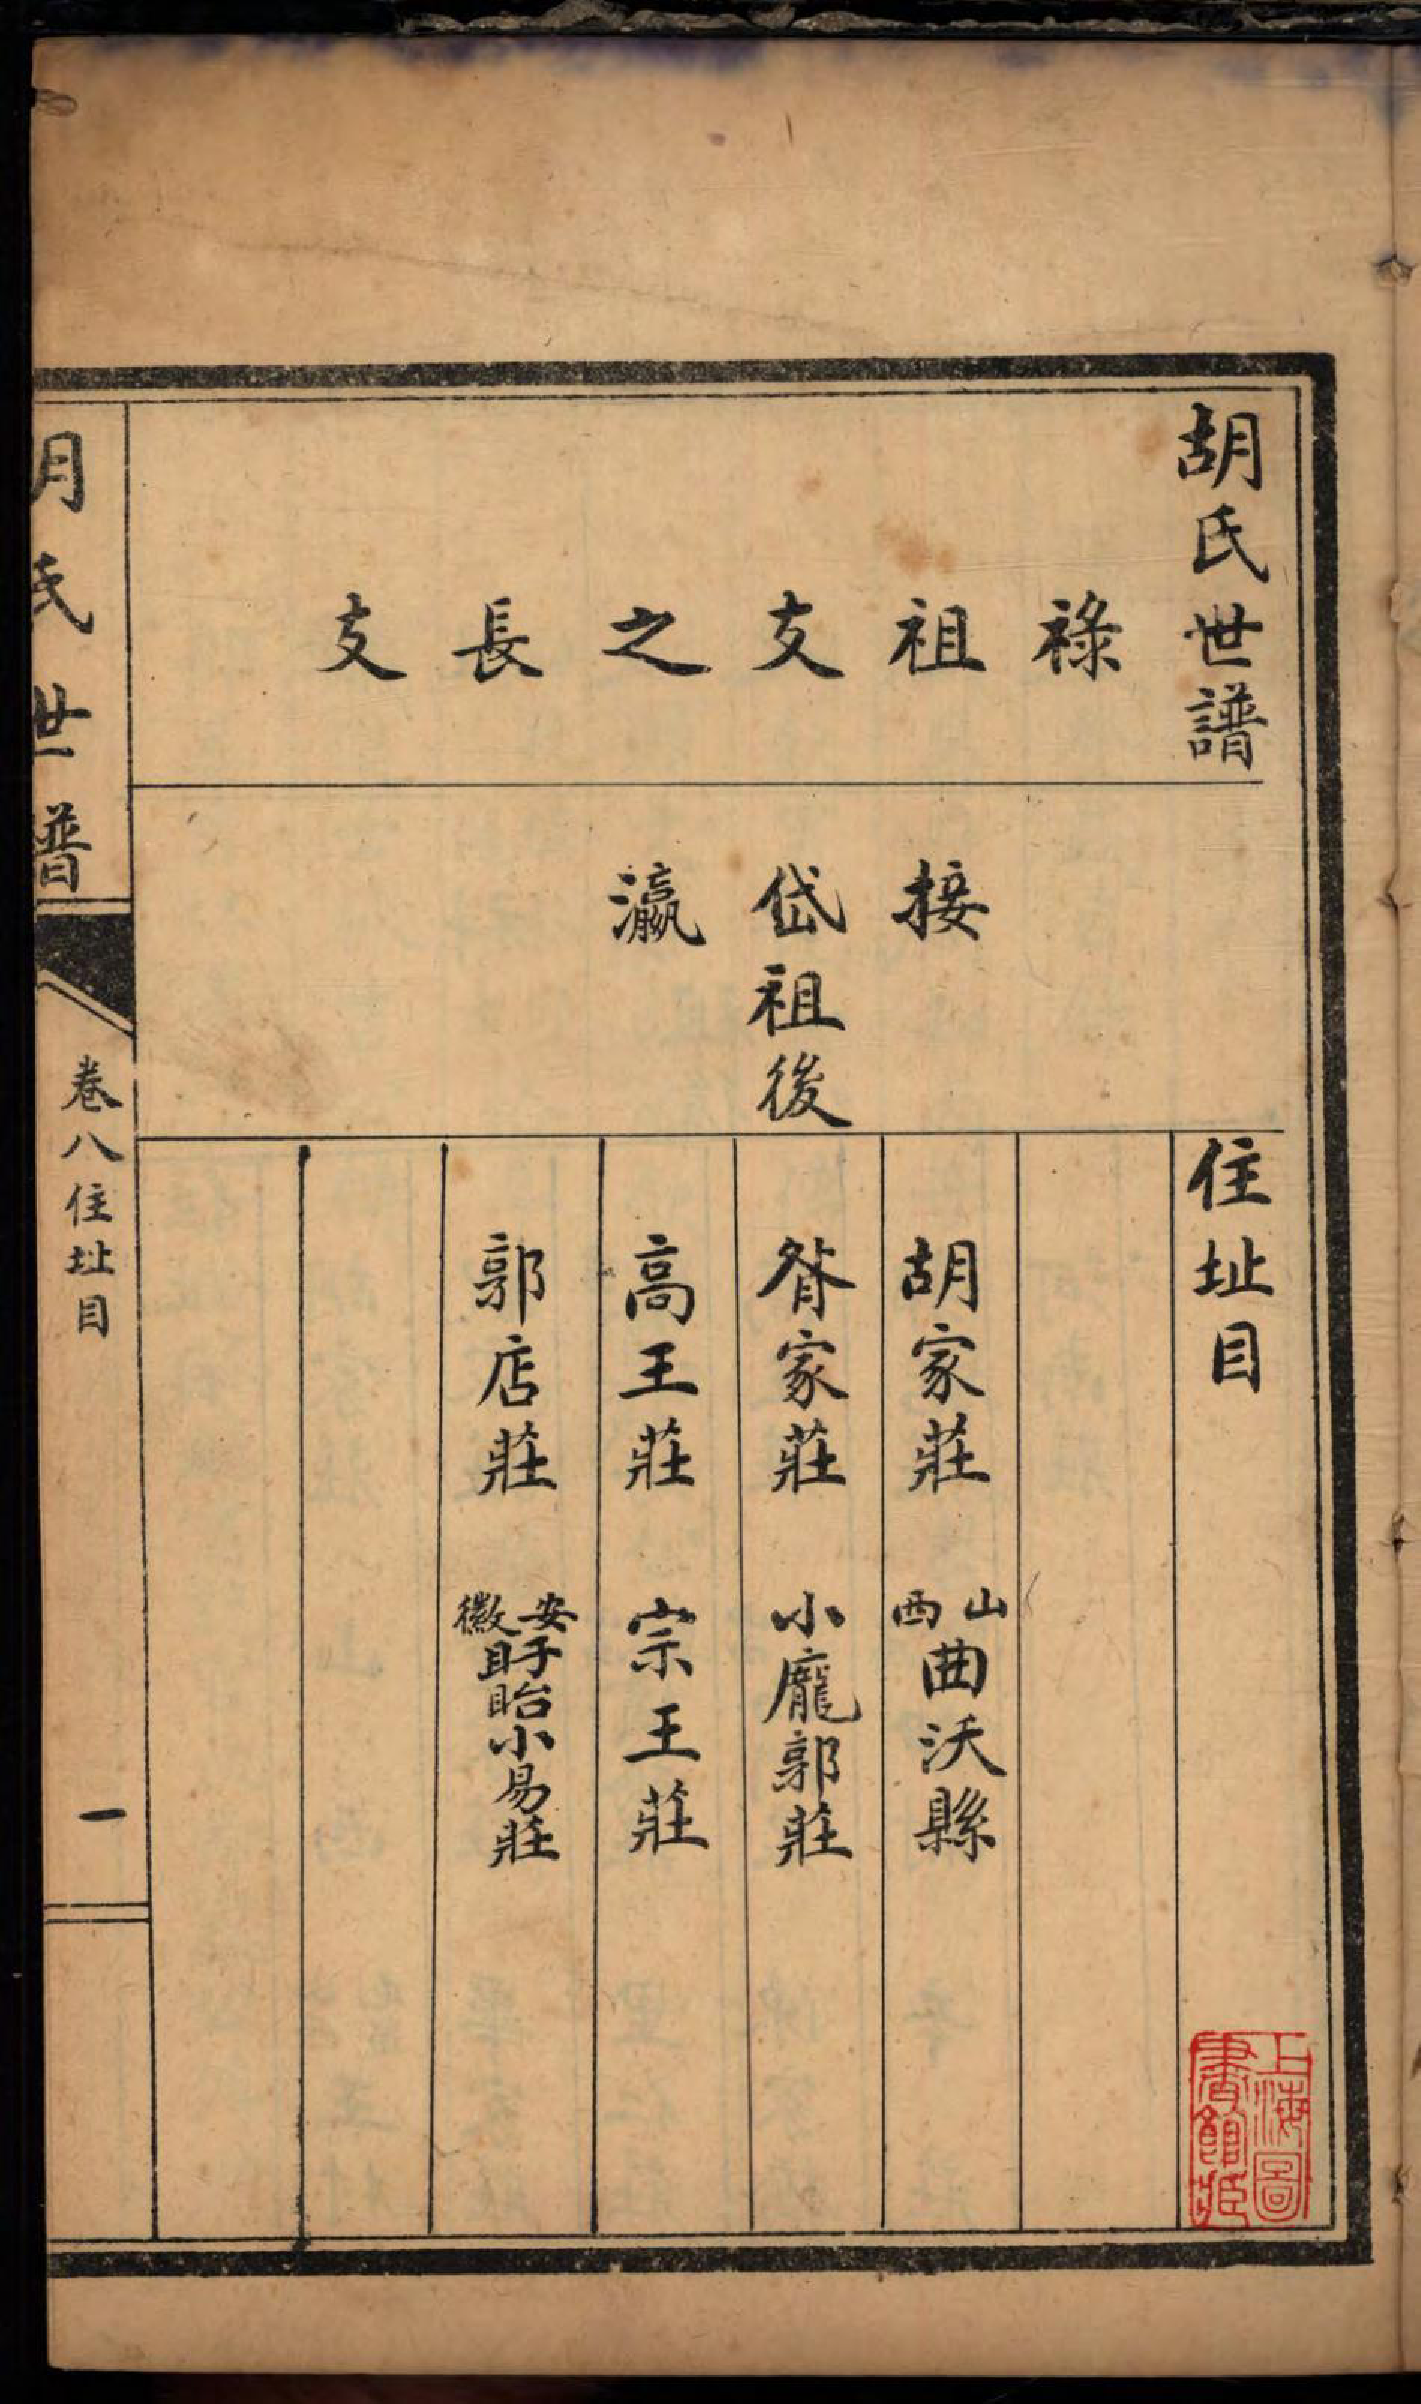 胡氏世譜 住址目
祿祖支之長支
接
岱祖後
瀛
胡家莊 山西曲沃縣
胥家莊 小龐郭莊
高王莊 宗王莊
郭店莊 安徽盱眙小易莊
胡氏世譜
卷八住址目
一
上海圖書館藏